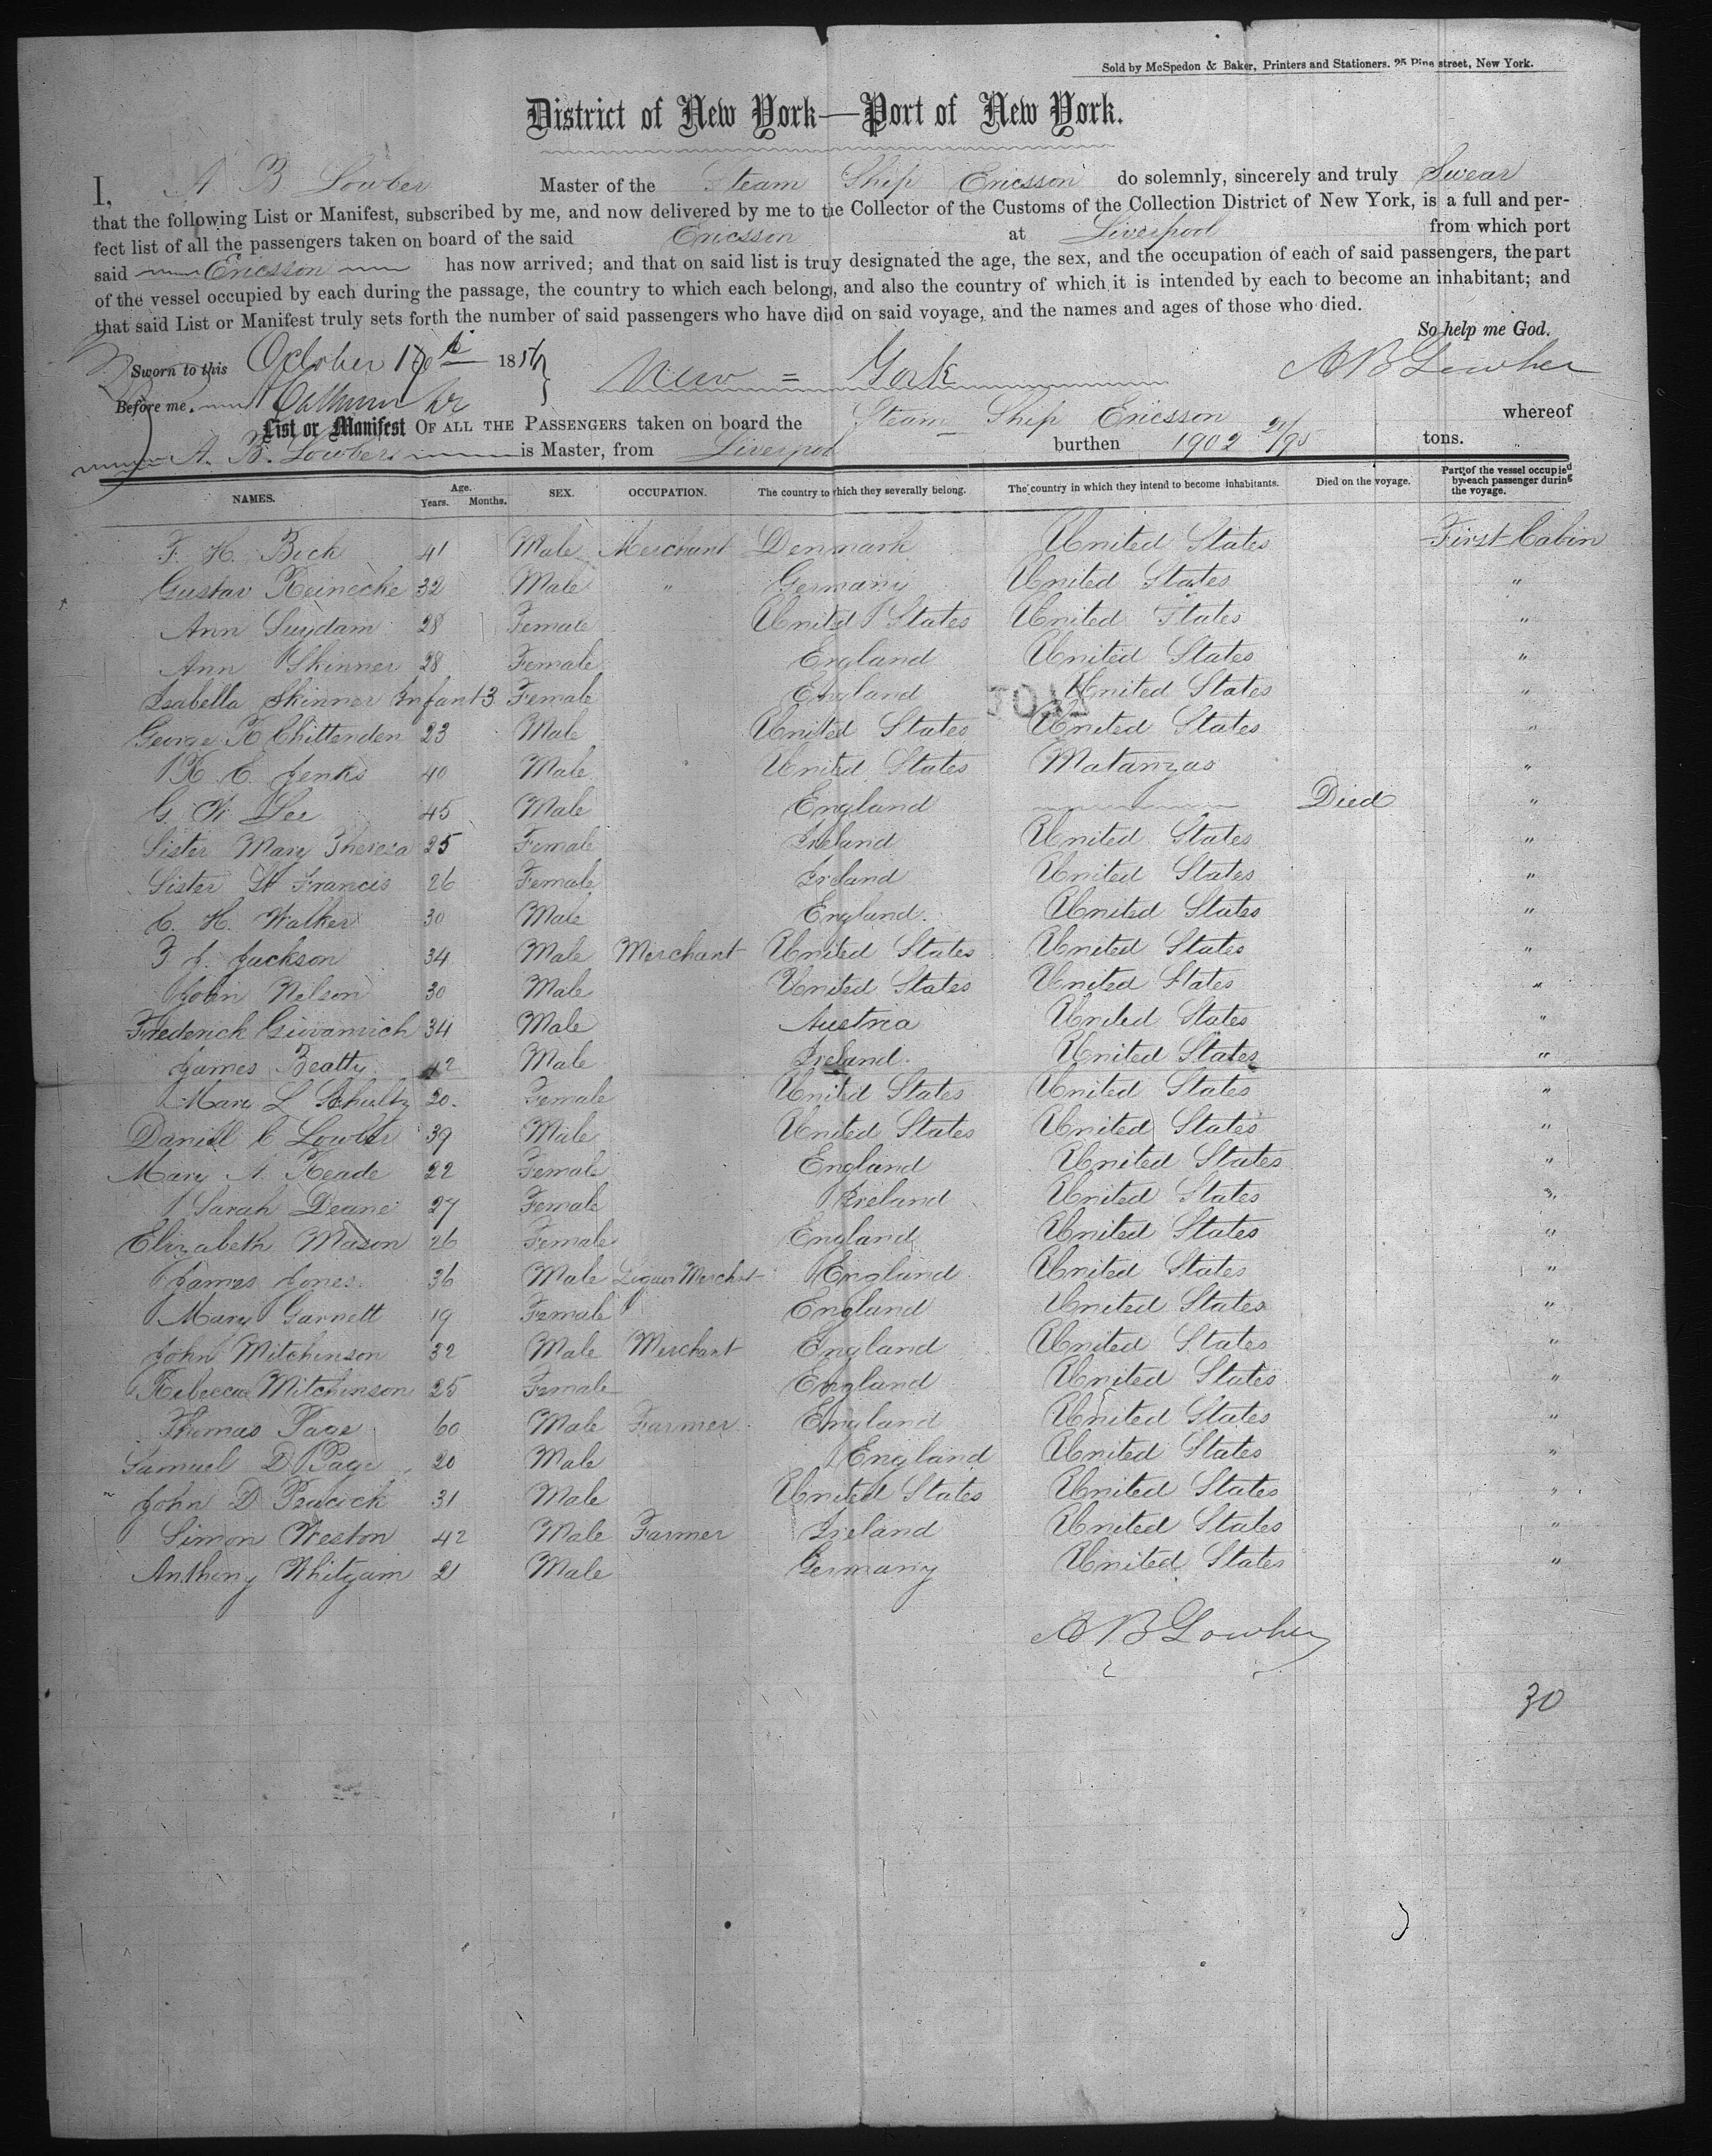 Sold by McSpedon & Baker, Printers and Stationers. 25 Pine street, New York.
District of New York—Port of New York.
I, A B Lowber Master of the Steam Ship Ericsson do solemnly, sincerely and truly Swear
that the following List or Manifest, subscribed by me, and now delivered by me to the Collector of the Customs of the Collection District of New York, is a full and per-
fect list of all the passengers taken on board of the said Ericsson at Liverpool from which port
said Ericsson has now arrived; and that on said list is truly designated the age, the sex, and the occupation of each of said passengers, the part
of the vessel occupied by each during the passage, the country to which each belongs, and also the country of which it is intended by each to become an inhabitant; and
that said List or Manifest truly sets forth the number of said passengers who have died on said voyage, and the names and ages of those who died.
So help me God.
Sworn to this October 18 New = York A B Lowber
Before me.
List or Manifest OF ALL THE PASSENGERS taken on board the Steam Ship Ericsson whereof
A. B. Lowber is Master, from Liverpool burthen 1902 21/95 tons.
NAMES. Age. Years. Months. SEX. OCCUPATION. The country to which they severally belong. The country in which they intend to become inhabitants. Died on the voyage. Part of the vessel occupied by each passenger during the voyage.
F. H. Beck 41 Male Merchant Denmark United States First Cabin
Gustav Reinecke 32 Male " Germany United States "
Ann Suydam 28 Female United States United States "
Ann Skinner 28 Female England United States "
Isabella Skinner Infant 3 Female England United States "
George R Chittenden 23 Male United States United States "
R. C. Jenks 40 Male United States Matanzas "
G. W. Lee 45 Male England Died "
Sister Mary Theresa 25 Female Ireland United States "
Sister St Francis 26 Female Ireland United States "
C. H. Walker 30 Male England. United States "
J. Jackson 34 Male Merchant United States United States "
John Nelson 30 Male United States United States "
Frederick 34 Male Austria United States "
James Beatty 42 Male Ireland. United States "
Mary L Schultz 20. Female United States United States "
Daniel C Lowber 39 Male United States United States "
Mary A. Reade 22 Female England United States "
Sarah Deane 27 Female Ireland United States "
Elizabeth Mason 26 Female England United States "
James Jones. 36 Male Liquor Merchat England United States "
Mary Garnett 19 Female England United States "
John Mitchinson 32 Male Merchant England United States "
Rebecca Mitchinson 25 Female England United States "
Thomas Page 60 Male Farmer England United States "
Samuel D Page 20 Male England United States "
John D Peacock 31 Male United States United States "
Simon Weston 42 Male Farmer Ireland United States "
Anthony 21 Male Germany United States "
A B Lowber
30